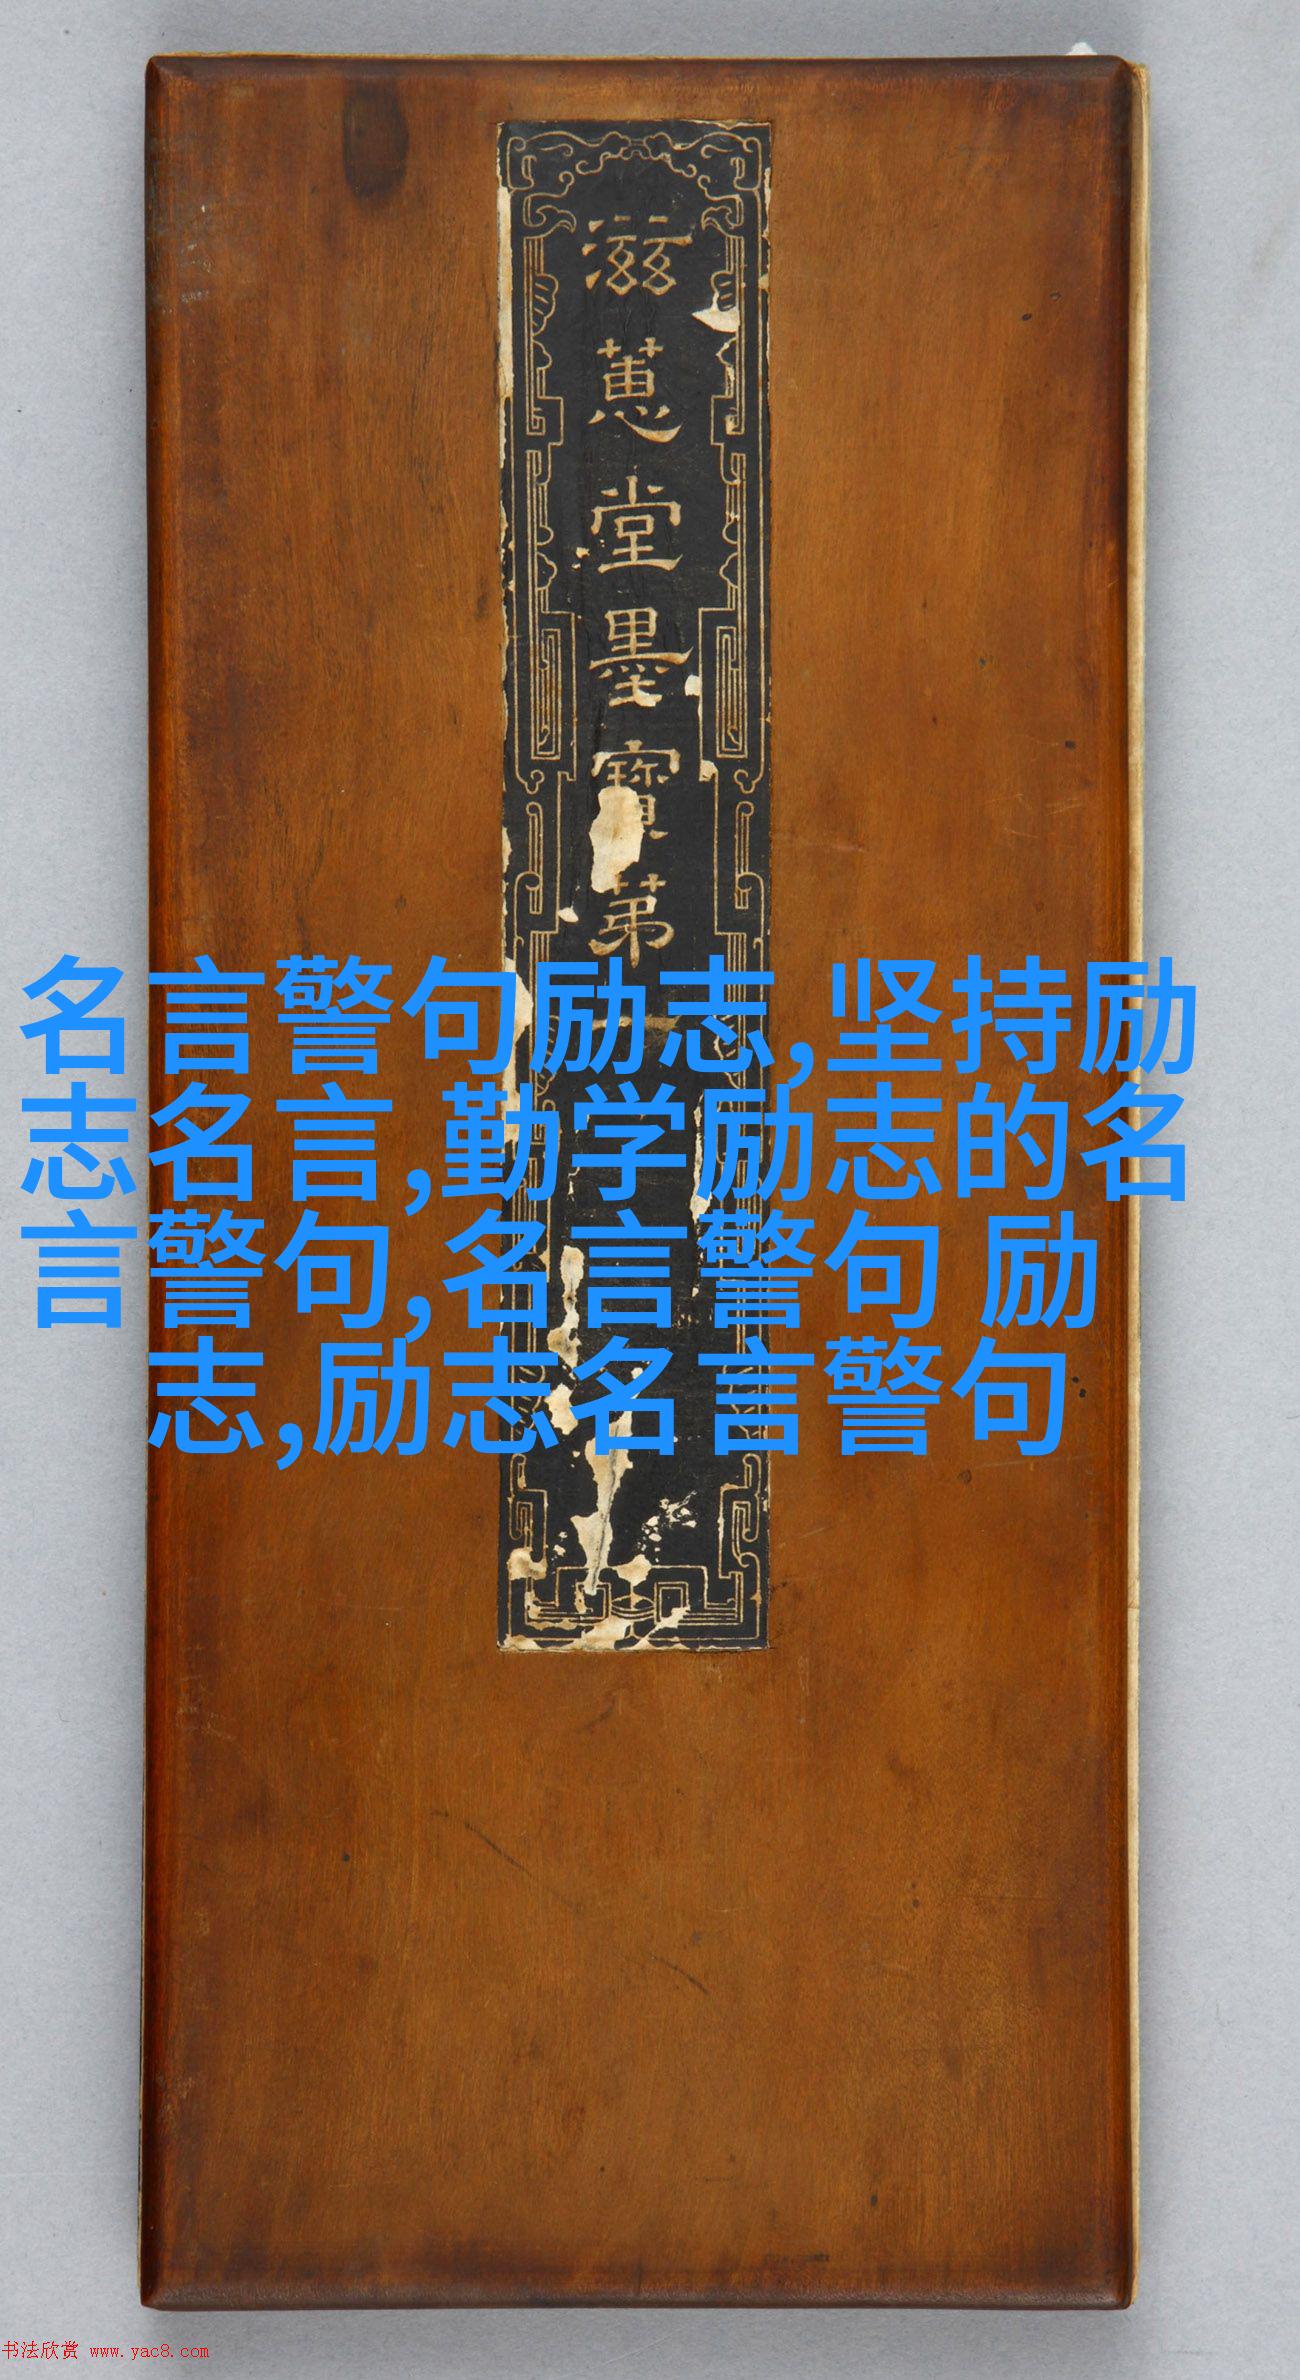 滋蕙堂墨寶苐一
名言警句励志,坚持励
志名言,勤学励志的名
言警句,名言警句 励
志,励志名言警句
书法欣赏 www.yac8.com